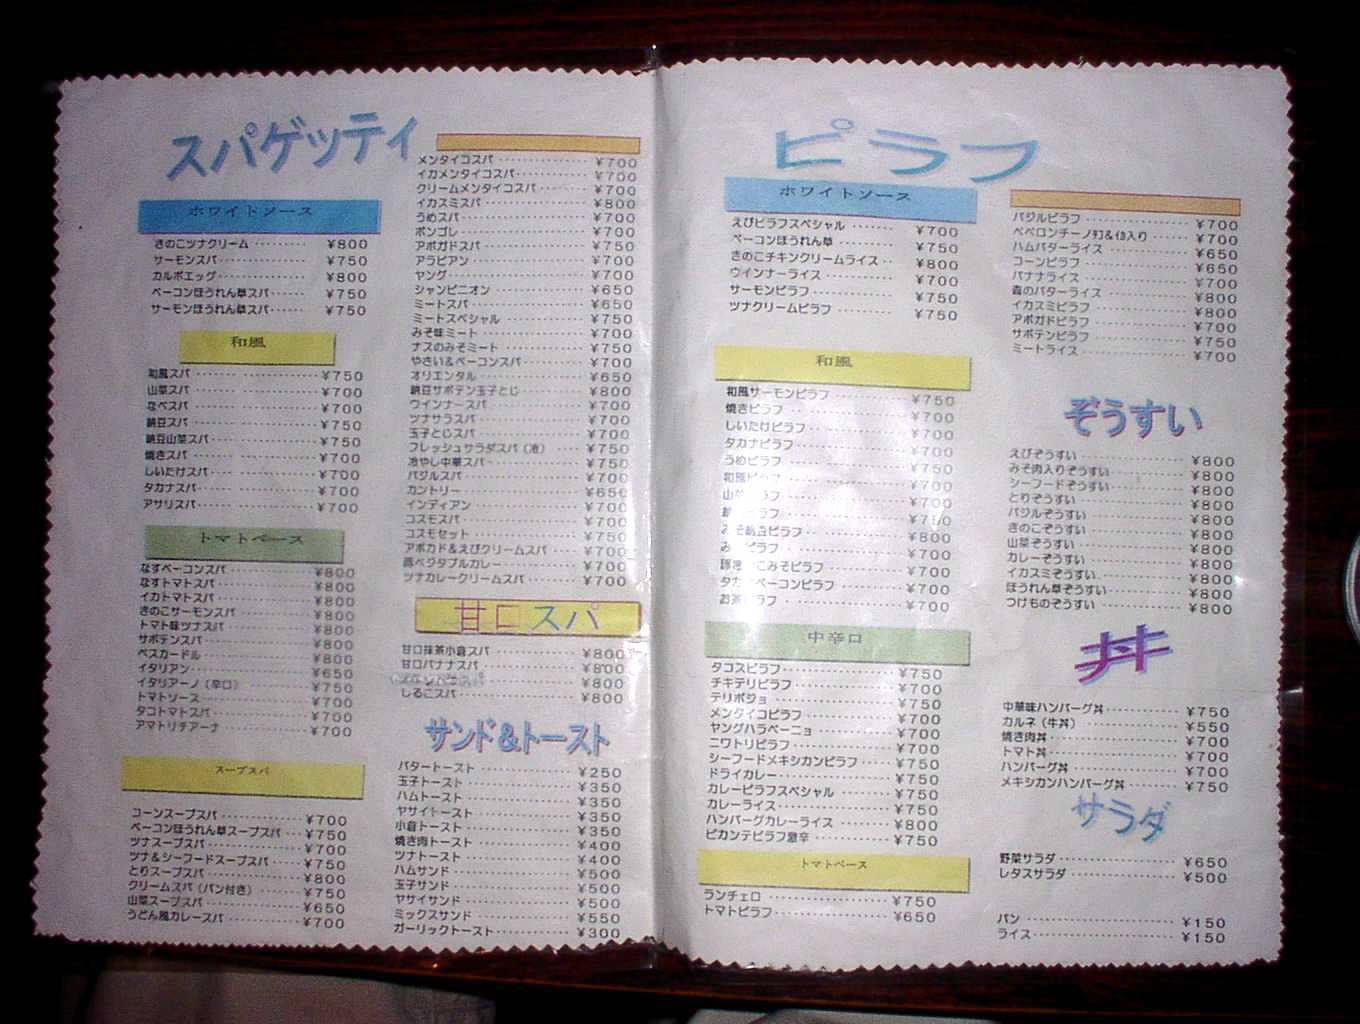 スパゲッティ
ホワイトソース
きのこツナクリーム ¥800
サーモンスパ ¥750
カルボエッグ ¥800
ベーコンほうれん草スパ ¥750
サーモンほうれん草スパ ¥750
和風
和風スパ ¥750
山菜スパ ¥700
なべスパ ¥700
納豆スパ ¥750
納豆山菜スパ ¥750
焼きスパ ¥700
しいたけスパ ¥700
タカナスパ ¥700
アサリスパ ¥700
トマトベース
なすベーコンスパ ¥800
なすトマトスパ ¥800
イカトマトスパ ¥800
きのこサーモンスパ ¥800
トマト味ツナスパ ¥800
サボテンスパ ¥800
ペスカードル ¥800
イタリアン ¥650
イタリアーノ（辛口） ¥750
トマトソース ¥700
タコトマトスパ ¥700
アマトリチアーナ ¥700
スープスパ
コーンスープスパ ¥700
ベーコンほうれん草スープスパ ¥750
ツナスープスパ ¥700
ツナ＆シーフードスープスパ ¥750
とりスープスパ ¥800
クリームスパ（パン付き） ¥750
山菜スープスパ ¥650
うどん風カレースパ ¥700
メンタイコスパ ¥700
イカメンタイコスパ ¥700
クリームメンタイコスパ ¥700
イカスミスパ ¥800
うめスパ ¥700
ボンゴレ ¥700
アボガドスパ ¥750
アラビアン ¥700
ヤング ¥700
シャンピニオン ¥650
ミートスパ ¥650
ミートスペシャル ¥750
みそ味ミート ¥700
ナスのみそミート ¥750
やさい＆ベーコンスパ ¥700
オリエンタル ¥650
納豆サボテン玉子とじ ¥800
ウインナースパ ¥700
ツナサラスパ ¥700
玉子とじスパ ¥700
フレッシュサラダスパ（冷） ¥750
冷やし中華スパ ¥750
バジルスパ ¥700
カントリー ¥650
インディアン ¥700
コスモスパ ¥700
コスモセット ¥750
アボカド＆えびクリームスパ ¥700
豚ベクタブルカレー ¥700
ツナカレークリームスパ ¥700
甘口スパ
甘口抹茶小倉スパ ¥800
甘口バナナスパ ¥800
¥800
しるこスパ ¥800
サンド＆トースト
バタートースト ¥250
玉子トースト ¥350
ハムトースト ¥350
ヤサイトースト ¥350
小倉トースト ¥350
焼き肉トースト ¥400
ツナトースト ¥400
ハムサンド ¥500
玉子サンド ¥500
ヤサイサンド ¥500
ミックスサンド ¥550
ガーリックトースト ¥300
ピラフ
ホワイトソース
えびピラフスペシャル ¥700
ベーコンほうれん草 ¥750
きのこチキンクリームライス ¥800
ウインナーライス ¥700
サーモンピラフ ¥750
ツナクリームピラフ ¥750
和風
和風サーモンピラフ ¥750
焼きピラフ ¥700
しいたけピラフ ¥700
タカナピラフ ¥700
うめピラフ ¥750
和風ピラフ ¥700
ピラフ ¥700
ピラフ ¥750
みそ納豆ピラフ ¥800
ピラフ ¥700
みそピラフ ¥700
タカナベーコンピラフ ¥700
お茶ピラフ ¥700
中辛口
タコスピラフ ¥750
チキテリピラフ ¥700
テリポジョ ¥750
メンタイコピラフ ¥700
ヤングハラペーニョ ¥700
ニワトリピラフ ¥700
シーフードメキシカンピラフ ¥750
ドライカレー ¥750
カレーピラフスペシャル ¥750
カレーライス ¥750
ハンバーグカレーライス ¥800
ピカンテピラフ激辛 ¥750
トマトベース
ランチェロ ¥750
トマトピラフ ¥650
バジルピラフ ¥700
ペペロンチーノﾀｺ&ｲｶ入り ¥700
ハムバターライス ¥650
コーンピラフ ¥650
バナナライス ¥700
森のバターライス ¥800
イカスミピラフ ¥800
アボガドピラフ ¥700
サボテンピラフ ¥750
ミートライス ¥700
ぞうすい
えびぞうすい ¥800
みそ肉入りぞうすい ¥800
シーフードぞうすい ¥800
とりぞうすい ¥800
バジルぞうすい ¥800
きのこぞうすい ¥800
山菜ぞうすい ¥800
カレーぞうすい ¥800
イカスミぞうすい ¥800
ほうれん草ぞうすい ¥800
つけものぞうすい ¥800
丼
中華味ハンバーグ丼 ¥750
カルネ（牛丼） ¥550
焼き肉丼 ¥700
トマト丼 ¥700
ハンバーグ丼 ¥700
メキシカンハンバーグ丼 ¥750
サラダ
野菜サラダ ¥650
レタスサラダ ¥500
パン ¥150
ライス ¥150